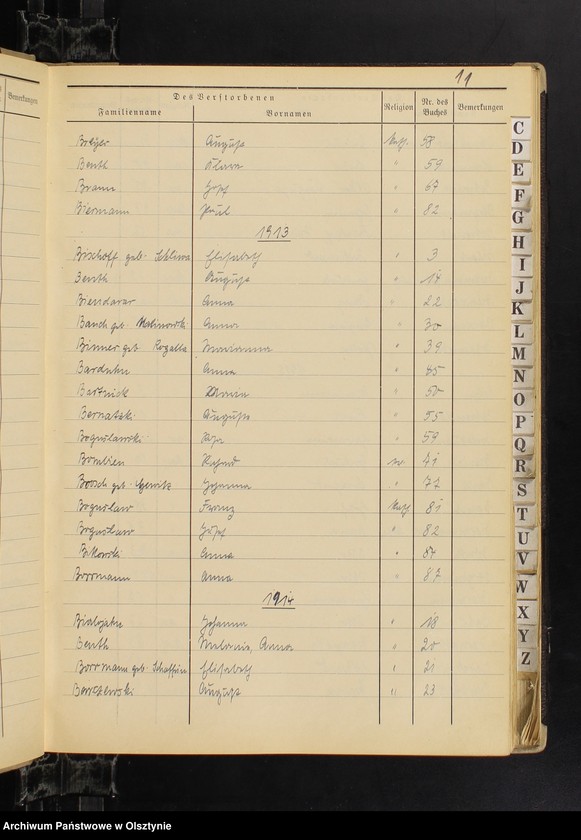 11
Bemerkungen
Des Verstorbenen
Familienname Vornamen Religion Nr. des Buches Bemerkungen
Breyer August kath. 58
Benth Klara " 59
Braun Josef " 67
Biermann Paul " 82
1913
Bischoff geb. Elisabeth " 3
Benth August " 14
Anna " 22
Bauch geb. Malinowski Anna " 30
Binner geb. Rogalla Marianna " 39
Barduhn Anna " 45
Bartnick Maria " 50
Bernatzki Auguste " 55
Boguslawski " 59
41
Boosch geb. Johanna " 77
Boguslaw Franz kath. 81
Boguslaw Josef " 82
Anna " 84
Borrmann Anna " 87
1914
Johanna " 18
Benth Anna " 20
Borrmann geb. Elisabeth " 21
August " 23
C
D
E
F
G
H
I
J
K
L
M
N
O
P
Q
R
S
T
U
V
W
X
Y
Z
Archiwum Państwowe w Olsztynie